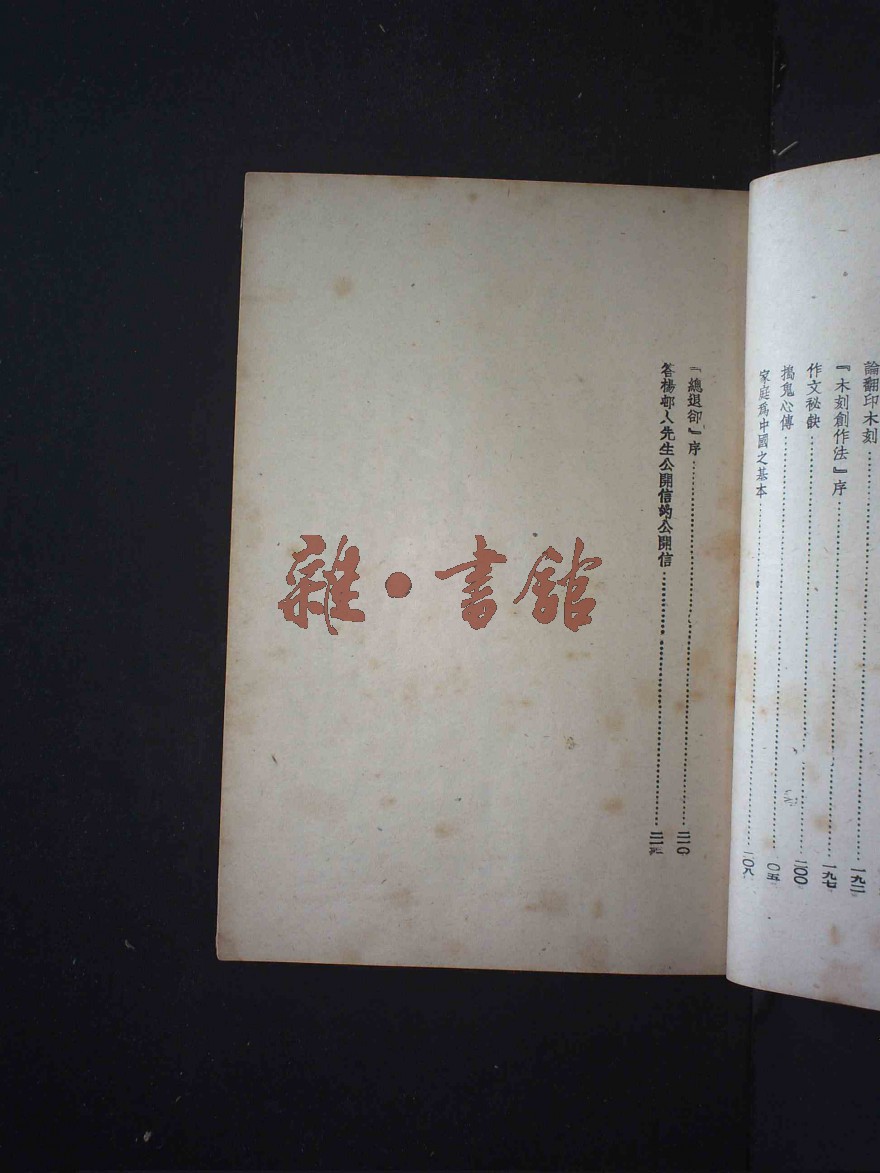 論翻印木刻……一九二
『木刻創作法』序……一九七
作文秘訣……二〇〇
搗鬼心傳……〇五
家庭爲中國之基本……二〇八
『總退卻』序……二一〇
答楊邨人先生公開信的公開信
雜・書館